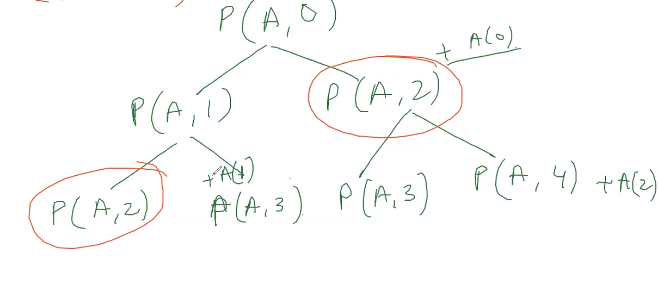 P(A,0)
+ A(0)
P(A,1)
P(A,2)
+A(1)
P(A,2)
P(A,3)
P(A,3)
P(A,4) +A(2)